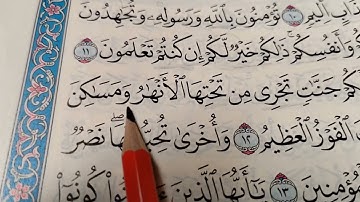 ابٍ أَلِيمٍ ١٠ تُؤْمِنُونَ بِٱللَّهِ وَرَسُولِهِۦ وَتُجَـٰهِدُونَ
وَأَنفُسِكُمْ ۚ ذَٰلِكُمْ خَيْرٌ لَّكُمْ إِن كُنتُمْ تَعْلَمُونَ ١١
كُمْ جَنَّـٰتٍ تَجْرِى مِن تَحْتِهَا ٱلْأَنْهَـٰرُ وَمَسَـٰكِنَ
ٱلْفَوْزُ ٱلْعَظِيمُ ١٢ وَأُخْرَىٰ تُحِبُّونَهَا ۖ نَصْرٌ
مُؤْمِنِينَ ١٣ يَـٰٓأَيُّهَا ٱلَّذِينَ كُونُوٓا۟